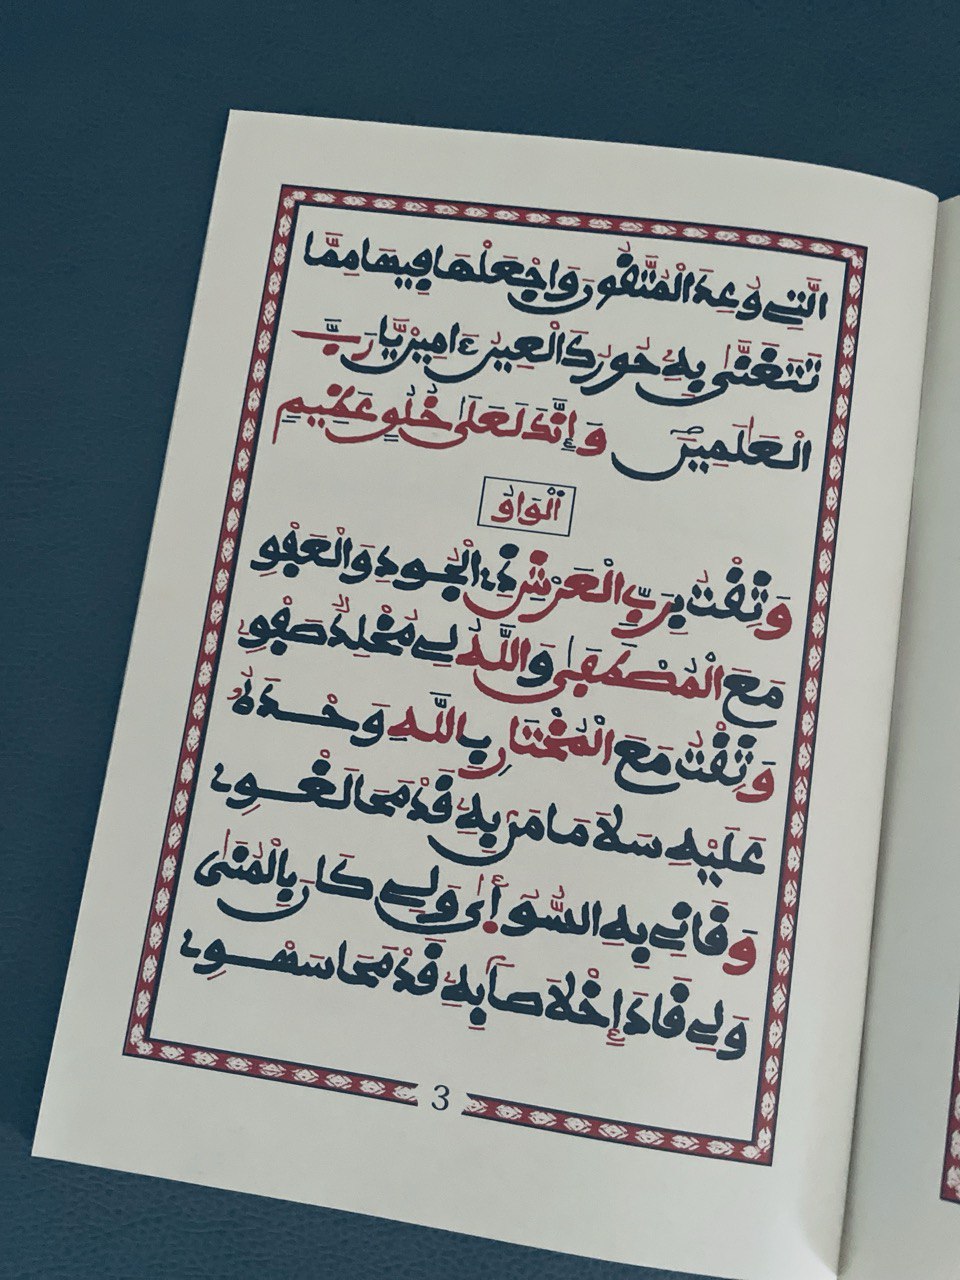 الَّتِي وُعِدَ الْمُتَّقُونَ وَاجْعَلْهَا فِيهَا مِمَّا
تَتَغَنَّى بِهِ حُورُكَ الْعِينُ ءَامِينَ يَا رَبَّ
الْعَٰلَمِينَ وَإِنَّكَ لَعَلَىٰ خُلُقٍ عَظِيمٍ
اَلْوَاوُ
وَثِقْتُ بِرَبِّ الْعَرْشِ ذِي الْجُودِ وَالْعَفْوِ
مَعَ الْمُصْطَفَىٰ وَاللَّهُ لِي مُخْلِدٌ صَفْوِي
وَثِقْتُ مَعَ الْمُخْتَارِ بِاللَّهِ وَحْدَهُ
عَلَيْهِ سَلَامَا مَنْ بِهِ قَدْ مَحَا لَغْوِي
وَقَانِي بِهِ السُّوأَىٰ وَلِي كَانَ بِالْمُنَىٰ
وَلِي قَادَ إِخْلَاصًا بِهِ قَدْ مَحَا سَهْوِي
3